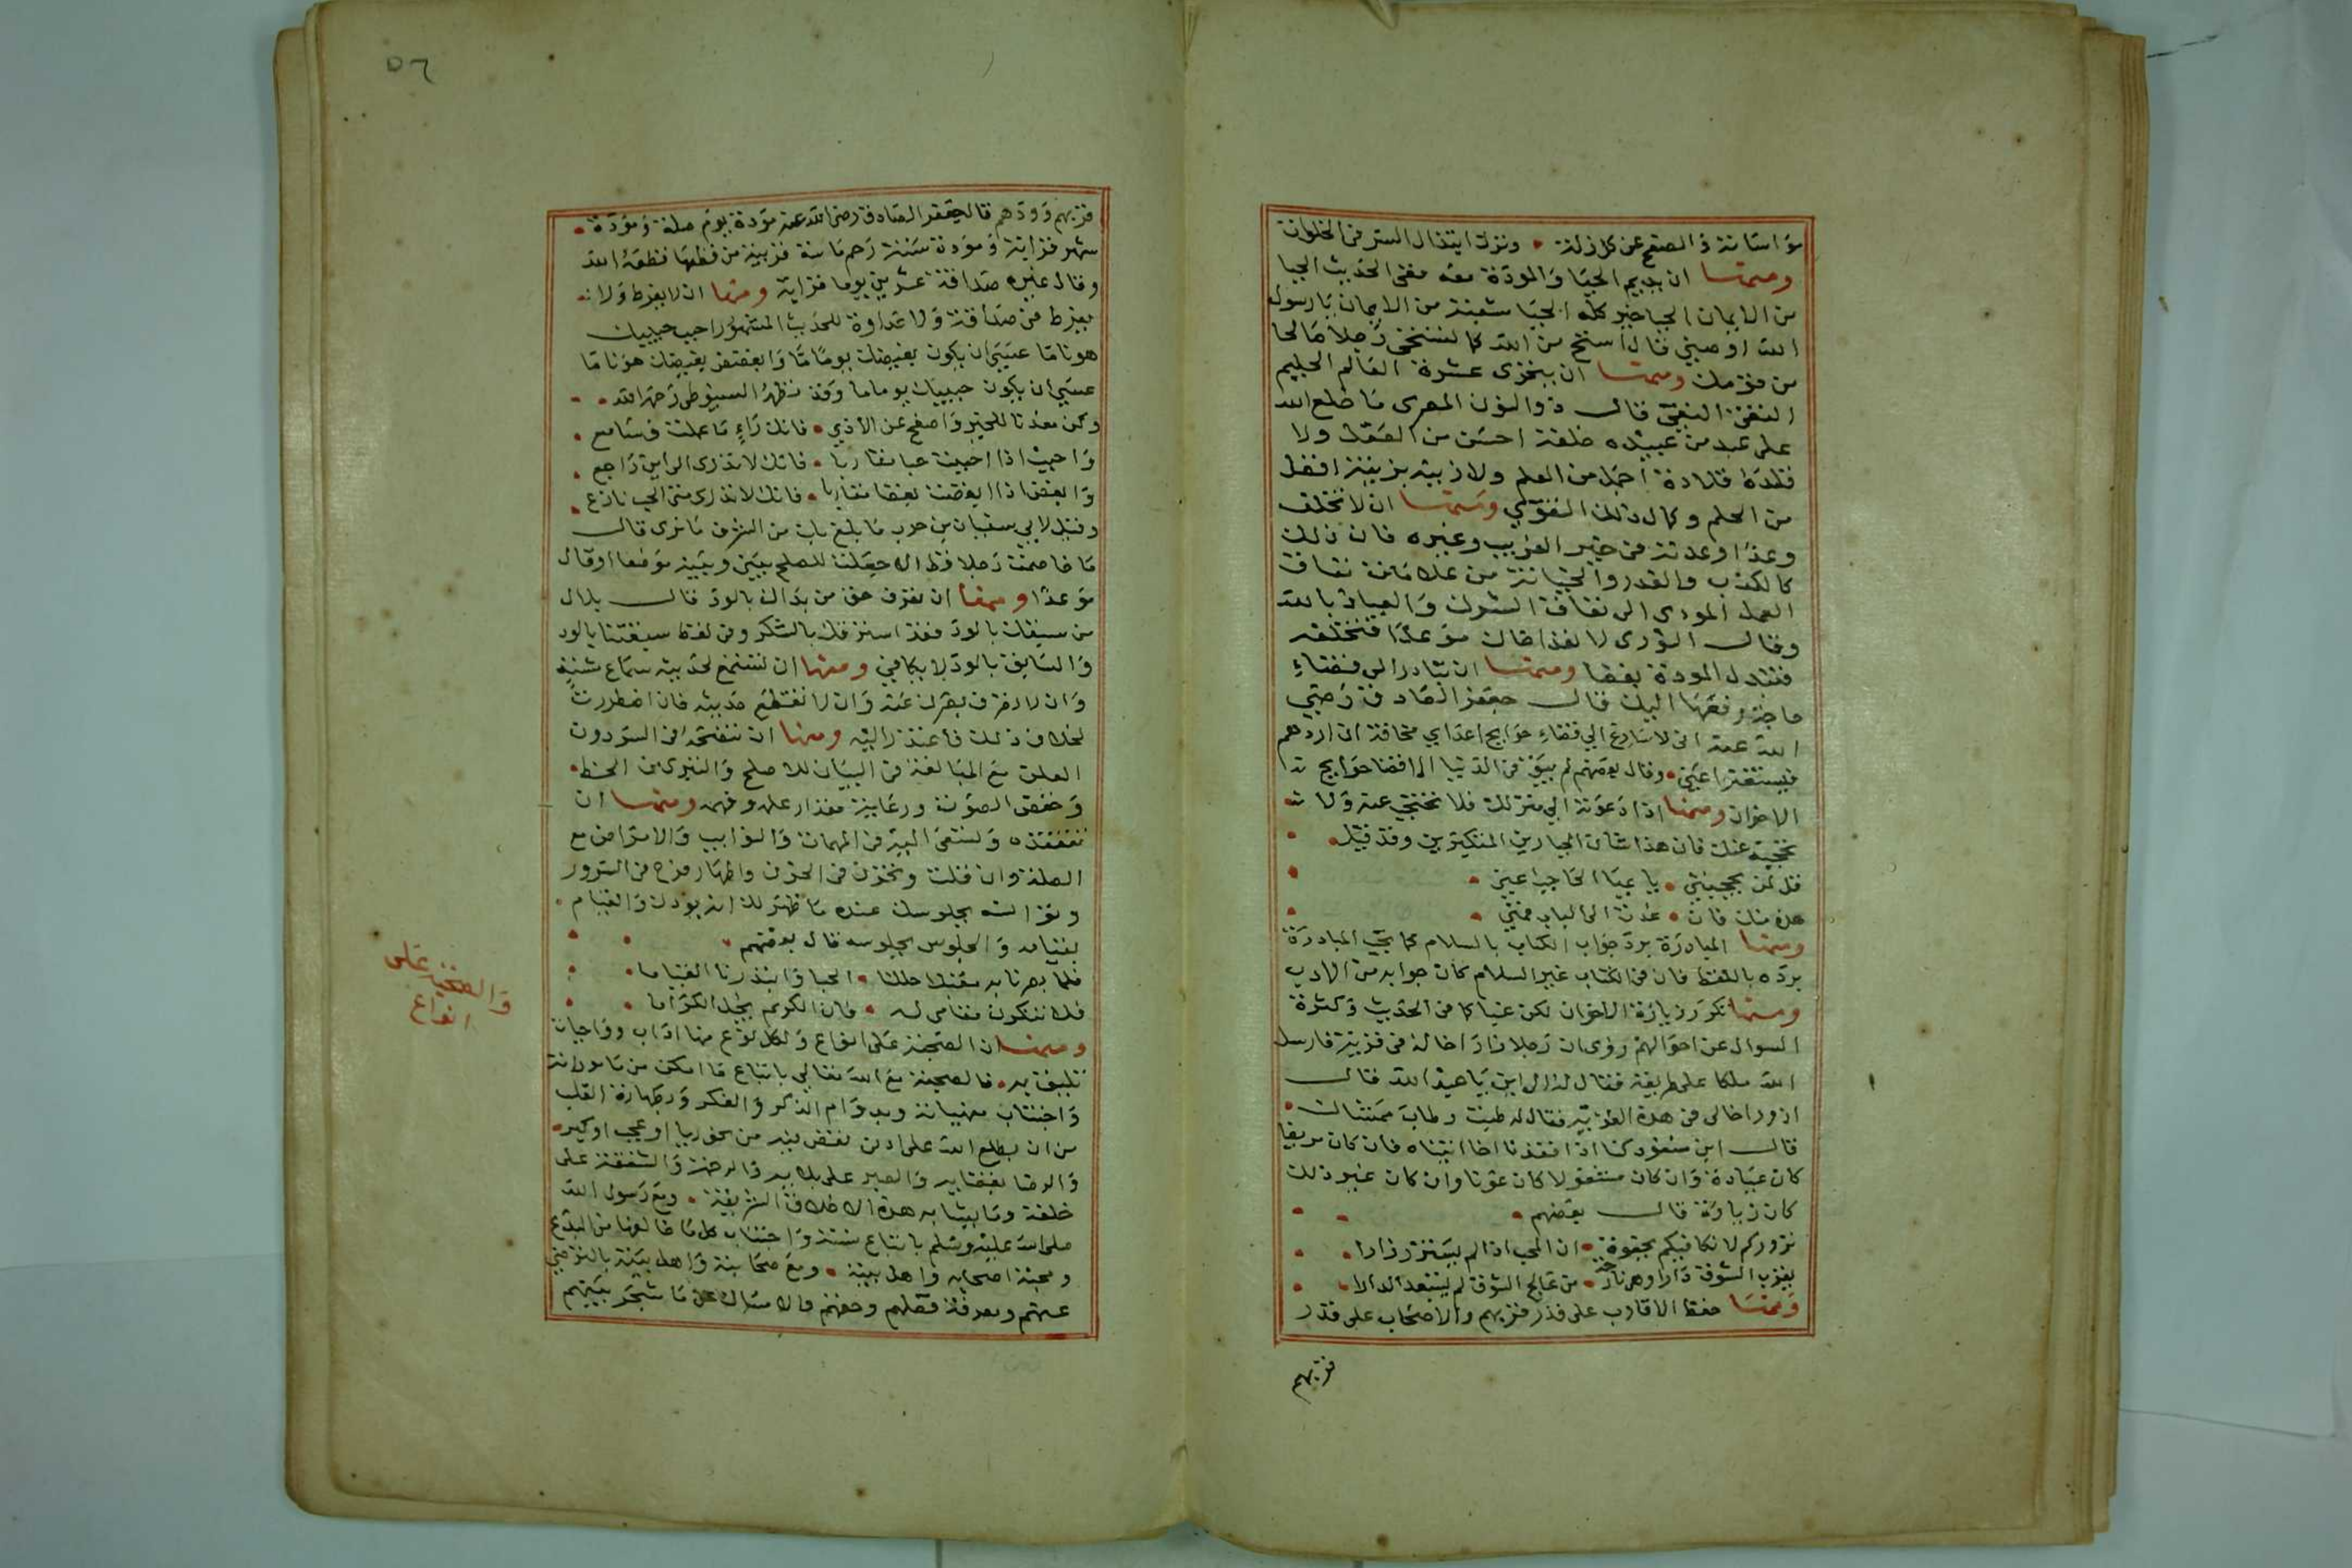 مؤاساته والصفح عن كل زلة • وترك ابتذال الستر في الخلوات
ومنها ان يديم الحيا والمودة معه ففي الحديث الحيا
من الايمان الحيا خير كله الحيا شعبة من الايمان يا رسول
الله اوصني قال استح من الله كما تستحي رجلا صالحا
من قومك ومنها ان يتحرى عشرة العالم الحليم
التقي قال ذو النون المصري ما خلع الله
على عبد من عبيده خلعة احسن من العقل ولا
قلده قلادة اجمل من العلم ولا زينه بزينة افضل
من الحلم وكمال ذلك التقوي ومنها ان لا تخلف
وعدا وعدته في خير القريب وغيره فان ذلك
كالكذب والغدر والخيانة من علامات نفاق
العمل المودى الى نفاق الشرك والعياذ بالله
وقال الثوري لا تعد اخاك موعدا فتخلفه
فتبدل المودة بغضا ومنها ان تبادر الى قضاء
حاجة رفعها اليك قال جعفر الصادق رضي
الله عنه اني لاسارع الي قضاء حوايج اعداي مخافة ان اردهم
فيستغنوا عني • وقال بعضهم لم يبق في الدنيا الا قضا حوايج
الاخوان ومنها اذا دعوته الي منزلك فلا تحتجب عنه ولا
تحجبه عنك فان هذا شان الجبارين المتكبرين وقد قيل •
قل لمن يحجبني • يا عبا الحاجب عني •
هذه منك فان • عدت الى الباب فمني •
ومنها المبادرة برد جواب الكتاب بالسلام كما تجب المبادرة
برده باللفظ فان في الكتاب غير السلام كان جوابه من الادب
ومنها تكرر زيارة الاخوان لكن غبا كما في الحديث وكثرة
السوال عن احوالهم روى ان رجلا زار اخا له في قرية فارسل
الله ملكا على طريقه فقال له الى اين يا عبد الله قال
ازور اخا لي في هذه القرية فقال له طبت وطاب ممشاك •
قال ابن مسعود كنا اذا افتقدنا اخا اتيناه فان كان مريضا
كان عيادة وان كان مشغولا كان عونا وان كان غير ذلك
كان زيارة قال بعضهم •
نزوركم لا نكافيكم بجفوة • ان المحب اذا لم يستزر زارا •
يقرب الشوق دارا وهي نازحة • من عالج الشوق لم يستبعد الدارا •
ومنها حفظ الاقارب على قدر قربهم والاصحاب على قدر
قربهم
٥٦
قربهم وودهم قال جعفر الصادق رضى الله عنه مودة يوم صلة ومودة •
شهر قرابة ومودة سنة رحم ماسة قريبة من قطعها قطعه الله
وقال غيره صداقة عشرين يوما قرابة ومنها ان لا يفرط ولا
يفرط في صداقة ولا عداوة للحديث المشهور احبب حبيبك
هونا ما عسى ان يكون بغيضك يوما ما وابغض بغيضك هونا ما
عسي ان يكون حبيبك يوما ما وقد نظمه السيوطي رحمه الله •
وكن معدنا للخير واصفح عن الاذي • فانك راء ما عملت وسامع •
واحبب اذا احببت حبا مقاربا • فانك لا تدري الى اين راجع •
وابغض اذا ابغضت بغضا مقاربا • فانك لا تدري متى الحب نازع •
وقيل لابي سفيان بن حرب ما بلغ بك من الشرف ما نرى قال
ما خاصمت رجلا قط الا جعلت للصلح بيني وبينه موضعا او قال
موعدا ومنها ان تعرف حق من بداك بالود قال بلال
من سبقك بالود فقد استرقك بالشكر وفي لفظ سبقتنا بالود
والسابق بالود لا يكافي ومنها ان تستمع لحديثه سماع
وان لا تصرف بصرك عنه وان لا تقطع حديثه فان اضطررت
لخلاف ذلك فاعتذر اليه ومنها ان
مع المبالغة في البيان للاصلح والتبري من الحظ •
وخفض الصوت ورعاية مقدار علمه وفهمه ومنها ان
تتفقده وتسعى اليه في المهمات والنوايب والامراض مع
الصلة وان قلت وتحزن في الحزن واظهار فرح في السرور
جلوسك عنده ما ظهر لك انه يودك والقيام •
بقيامه والجلوس بجلوسه قال بعضهم •
فلما بصرنا به مقبلا حللنا • الحبا وابتدرنا القياما •
فلا تنكرن قيامي له • فان الكريم يجل الكراما •
ومنها ان الصحبة على انواع ولكل نوع منها اداب وواجبات
تليق به • فالصحبة مع الله تعالى باتباع ما امكن من ماموراته
واجتناب منهياته وبدوام الذكر والفكر وطهارة القلب
من ان يطلع الله على ادنى نقص فيه من نحو ريا او عجب او كبر •
والرضا بقضايه والصبر على بلايه والرحمة والشفقة على
خلقه وما يشابه هذه الاخلاق الشريفة • ومع رسول الله
صلى الله عليه وسلم باتباع سنته واجتناب كل ما خالفها من البدع
ومحبة اصحابه واهل بيته • ومع صحابته واهل بيته بالترضي
عنهم ومعرفة فضلهم وحقهم والامساك عن ما شجر بينهم
والصحبة على
انواع